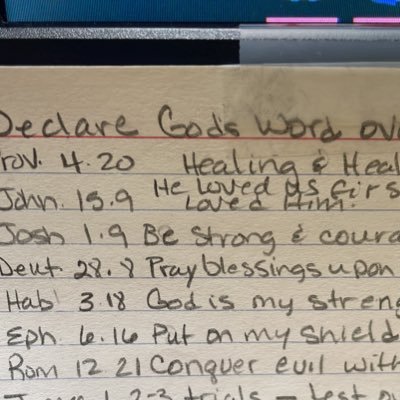 Declare Gods Word ov
rov. 4.20 Healing & Heal
He loved us firs
John. 15.9 Loved Him.
Josh 1.9 Be strong & coura
Deut. 28.8 Pray blessings upon
Hab 3.18 God is my streng
Eph 6.16 Put on my shield
Rom 12.21 Conquer evil with
1.2-3 trials - test